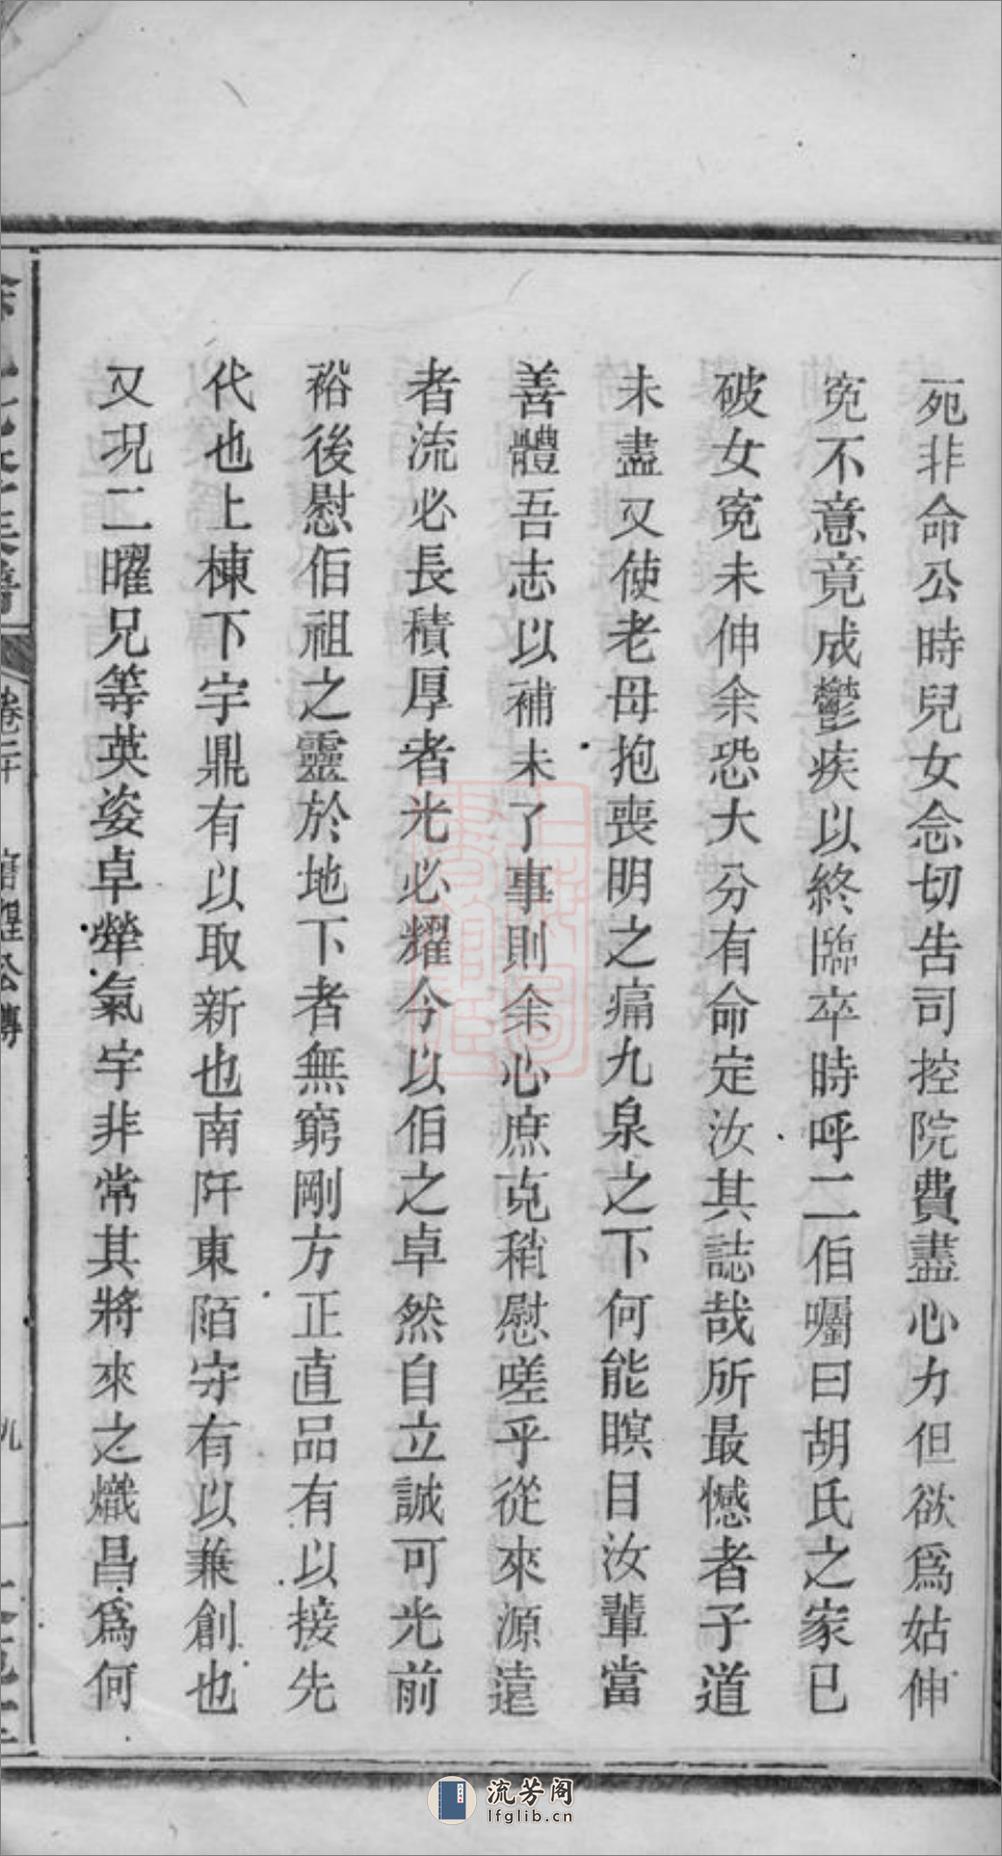 死非命公時兒女念切告司控院費盡心力但欲爲姑伸
冤不意竟成鬱疾以終臨卒時呼二伯囑曰胡氏之家已
破女冤未伸余恐大分有命定汝其誌哉所最憾者子道
未盡又使老母抱喪明之痛九泉之下何能瞑目汝輩當
善體吾志以補未了事則余心庶克稍慰嗟乎從來源遠
者流必長積厚者光必耀今以伯之卓然自立誠可光前
裕後慰伯祖之靈於地下者無窮剛方正直品有以接先
代也上棟下宇鼎有以取新也南阡東陌守有以兼創也
又況二曜兄等英姿卓犖氣宇非常其將來之熾昌爲何
卷二十
公傳
九
流芳阁
lfglib.cn